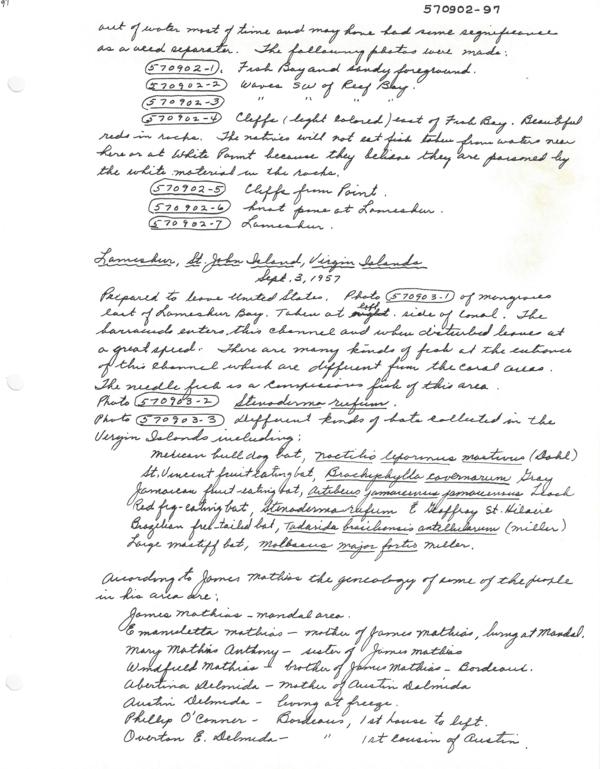 97
570902-97
out of water most of time and may have had some significance
as a seed separater. The following photos were made:
570902-1. Fish Bay and sandy foreground.
570902-2 Waves SW of Reef Bay.
570902-3 " " " "
570902-4 Cliffs (light colored) east of Fish Bay. Beautiful
reds in rocks. The natives will not eat fish taken from waters near
here or at White Point because they believe they are poisoned by
the white material in the rocks.
570902-5 Cliffs from Point.
570902-6 at Lameshur.
570902-7 Lameshur.
Lameshur, St. John Island, Virgin Islands
Sept. 3, 1957
Prepared to leave United States. Photo 570903-1 of mangroves
east of Lameshur Bay. Taken at left side of canal. The
barracuda enters this channel and when disturbed leaves at
a great speed. There are many kinds of fish at the entrance
of this channel which are different from the coral areas.
The needle fish is a conspicious fish of this area.
Photo 570903-2 Stenoderma rufum.
Photo 570903-3 Different kinds of bats collected in the
Virgin Islands including:
Mexican bull dog bat, Noctilio leporinus mastivus (Dahl)
St. Vincent fruit eating bat, Brachyphylla cavernarum Gray
Jamaican fruit eating bat, Artibeus jamaicensis jamaicensis Leach
Red fig-eating bat, Stenoderma rufum E Geoffroy St. Hilaire
Brazilian free-tailed bat, Tadarida brasiliensis antillularum (Miller)
Large mastiff bat, Molossus major fortis Miller.
According to James Mathias the geneology of some of the people
in his area are:
James Mathias - Mandal area.
Emanuletta Mathias - mother of James Mathias, living at Mandal.
Mary Mathias Anthony - sister of James Mathias
Windfield Mathias - brother of James Mathias - Bordeaus.
Abertina Delmida - Mother of Austin Dalmida
Austin Delmida - living at freeze.
Phillip O'Conner - Bordeaus, 1st house to left.
Overton E. Delmida - " 1st cousin of Austin.